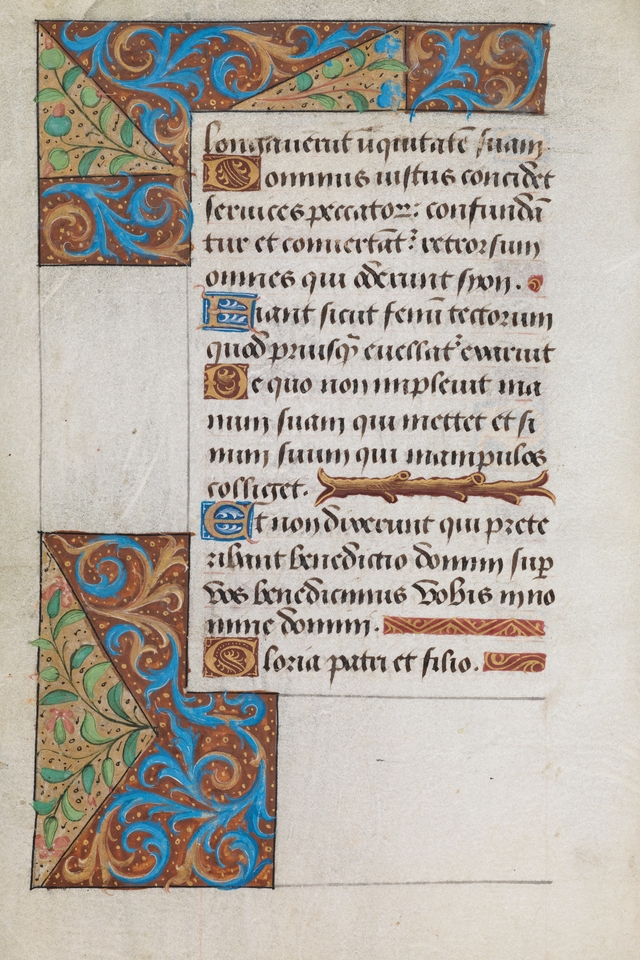 longauerūt iniquitatē suam
Dominus iustus concidet
ceruices peccatoꝝ: confundā
tur et conuertāt᷑ retrorsum
omnes qui oderunt syon.
Fiant sicut fenū tectorum
quod priusq̄ euellat᷑ exaruit
De quo non impleuit ma
num suam qui mettet et si
num suum qui manipulos
colliget.
Et non dixerunt qui prete
ribant benedictio domini sup̄
vos benediximus vobis in no
mine domini.
Gloria patri et filio.